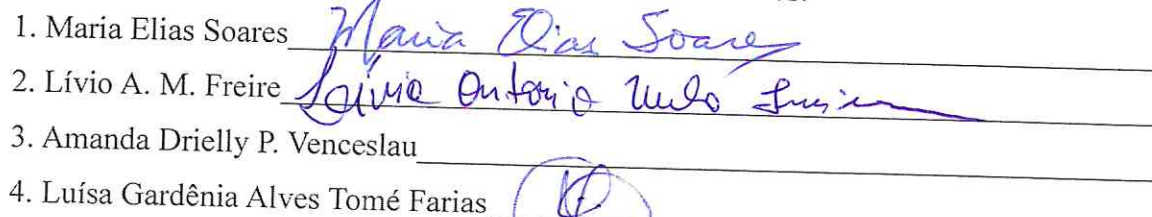 1. Maria Elias Soares Maria Elias Soares
2. Lívio A. M. Freire Lívio Antonio Melo Freire
3. Amanda Drielly P. Venceslau
4. Luísa Gardênia Alves Tomé Farias